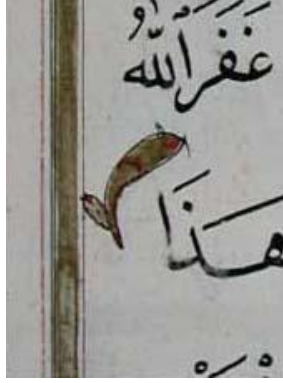 غَفَرَ اللّٰهُ
هَذَا